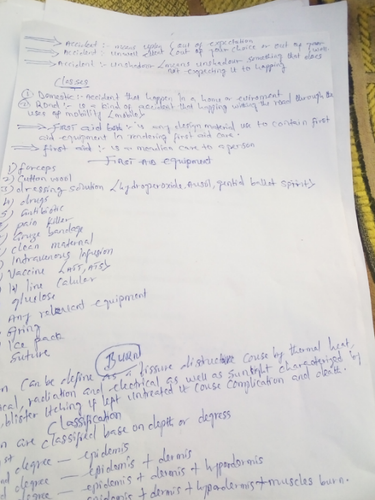 Accident :- means Upon { out of expectation
Accident :- unwell sent { out of your choice or out of your
Accident :- unshadow { means unshadow something that does
not expecting it to happing
Classes
① Domestic :- accident that happen in a home environment
② Road :- is a kind of accident that happing wising the road through the
uses of mobility {mobile}
First aid box :- is any design material us to contain first
aid equipment in rendering first aid care.
first aid :- is a mandian care to a person
First aid equipment
1) forceps
2) Cutton wool
3) dressing solution {hydroperoxide, eusil, gentid ballet spirit}
4) drugs
5) Antibiotic
pain killer
gruze bandage
clean maternal
Intravanous Infusion
Vaccine {ATT, ATS}
IV line Canular
gluclose
Any relevant equipment
string
Ice pack
suture
Burn
n Can be define as a tissue distructive cause by thermal heat,
ical, radiation and electrical as well as sunlight characterized by
blister itching if left untreated it cause complication and death.
Classification
n are classified base on depth or degress
st — epidemis
nd degree — epidemis + dermis
degree — epidemis + dermis + hypodermis
degree — epidemis + dermis + hypodermis + muscles burn.